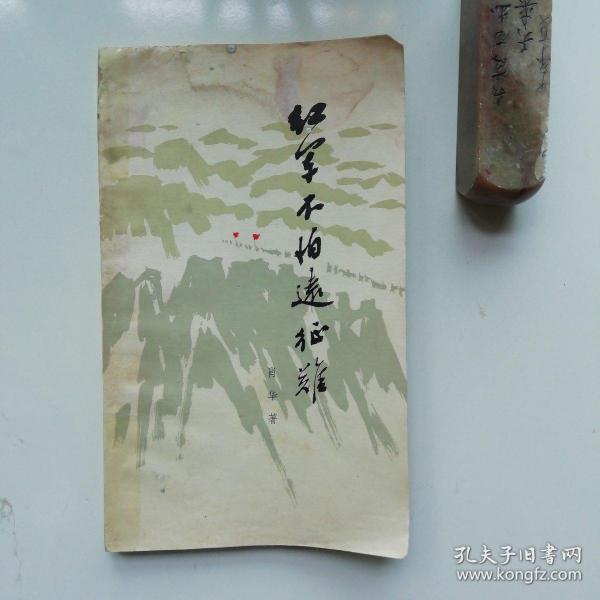 红军不怕遠征難
肖华著
孔夫子旧书网
www.kongfz.com